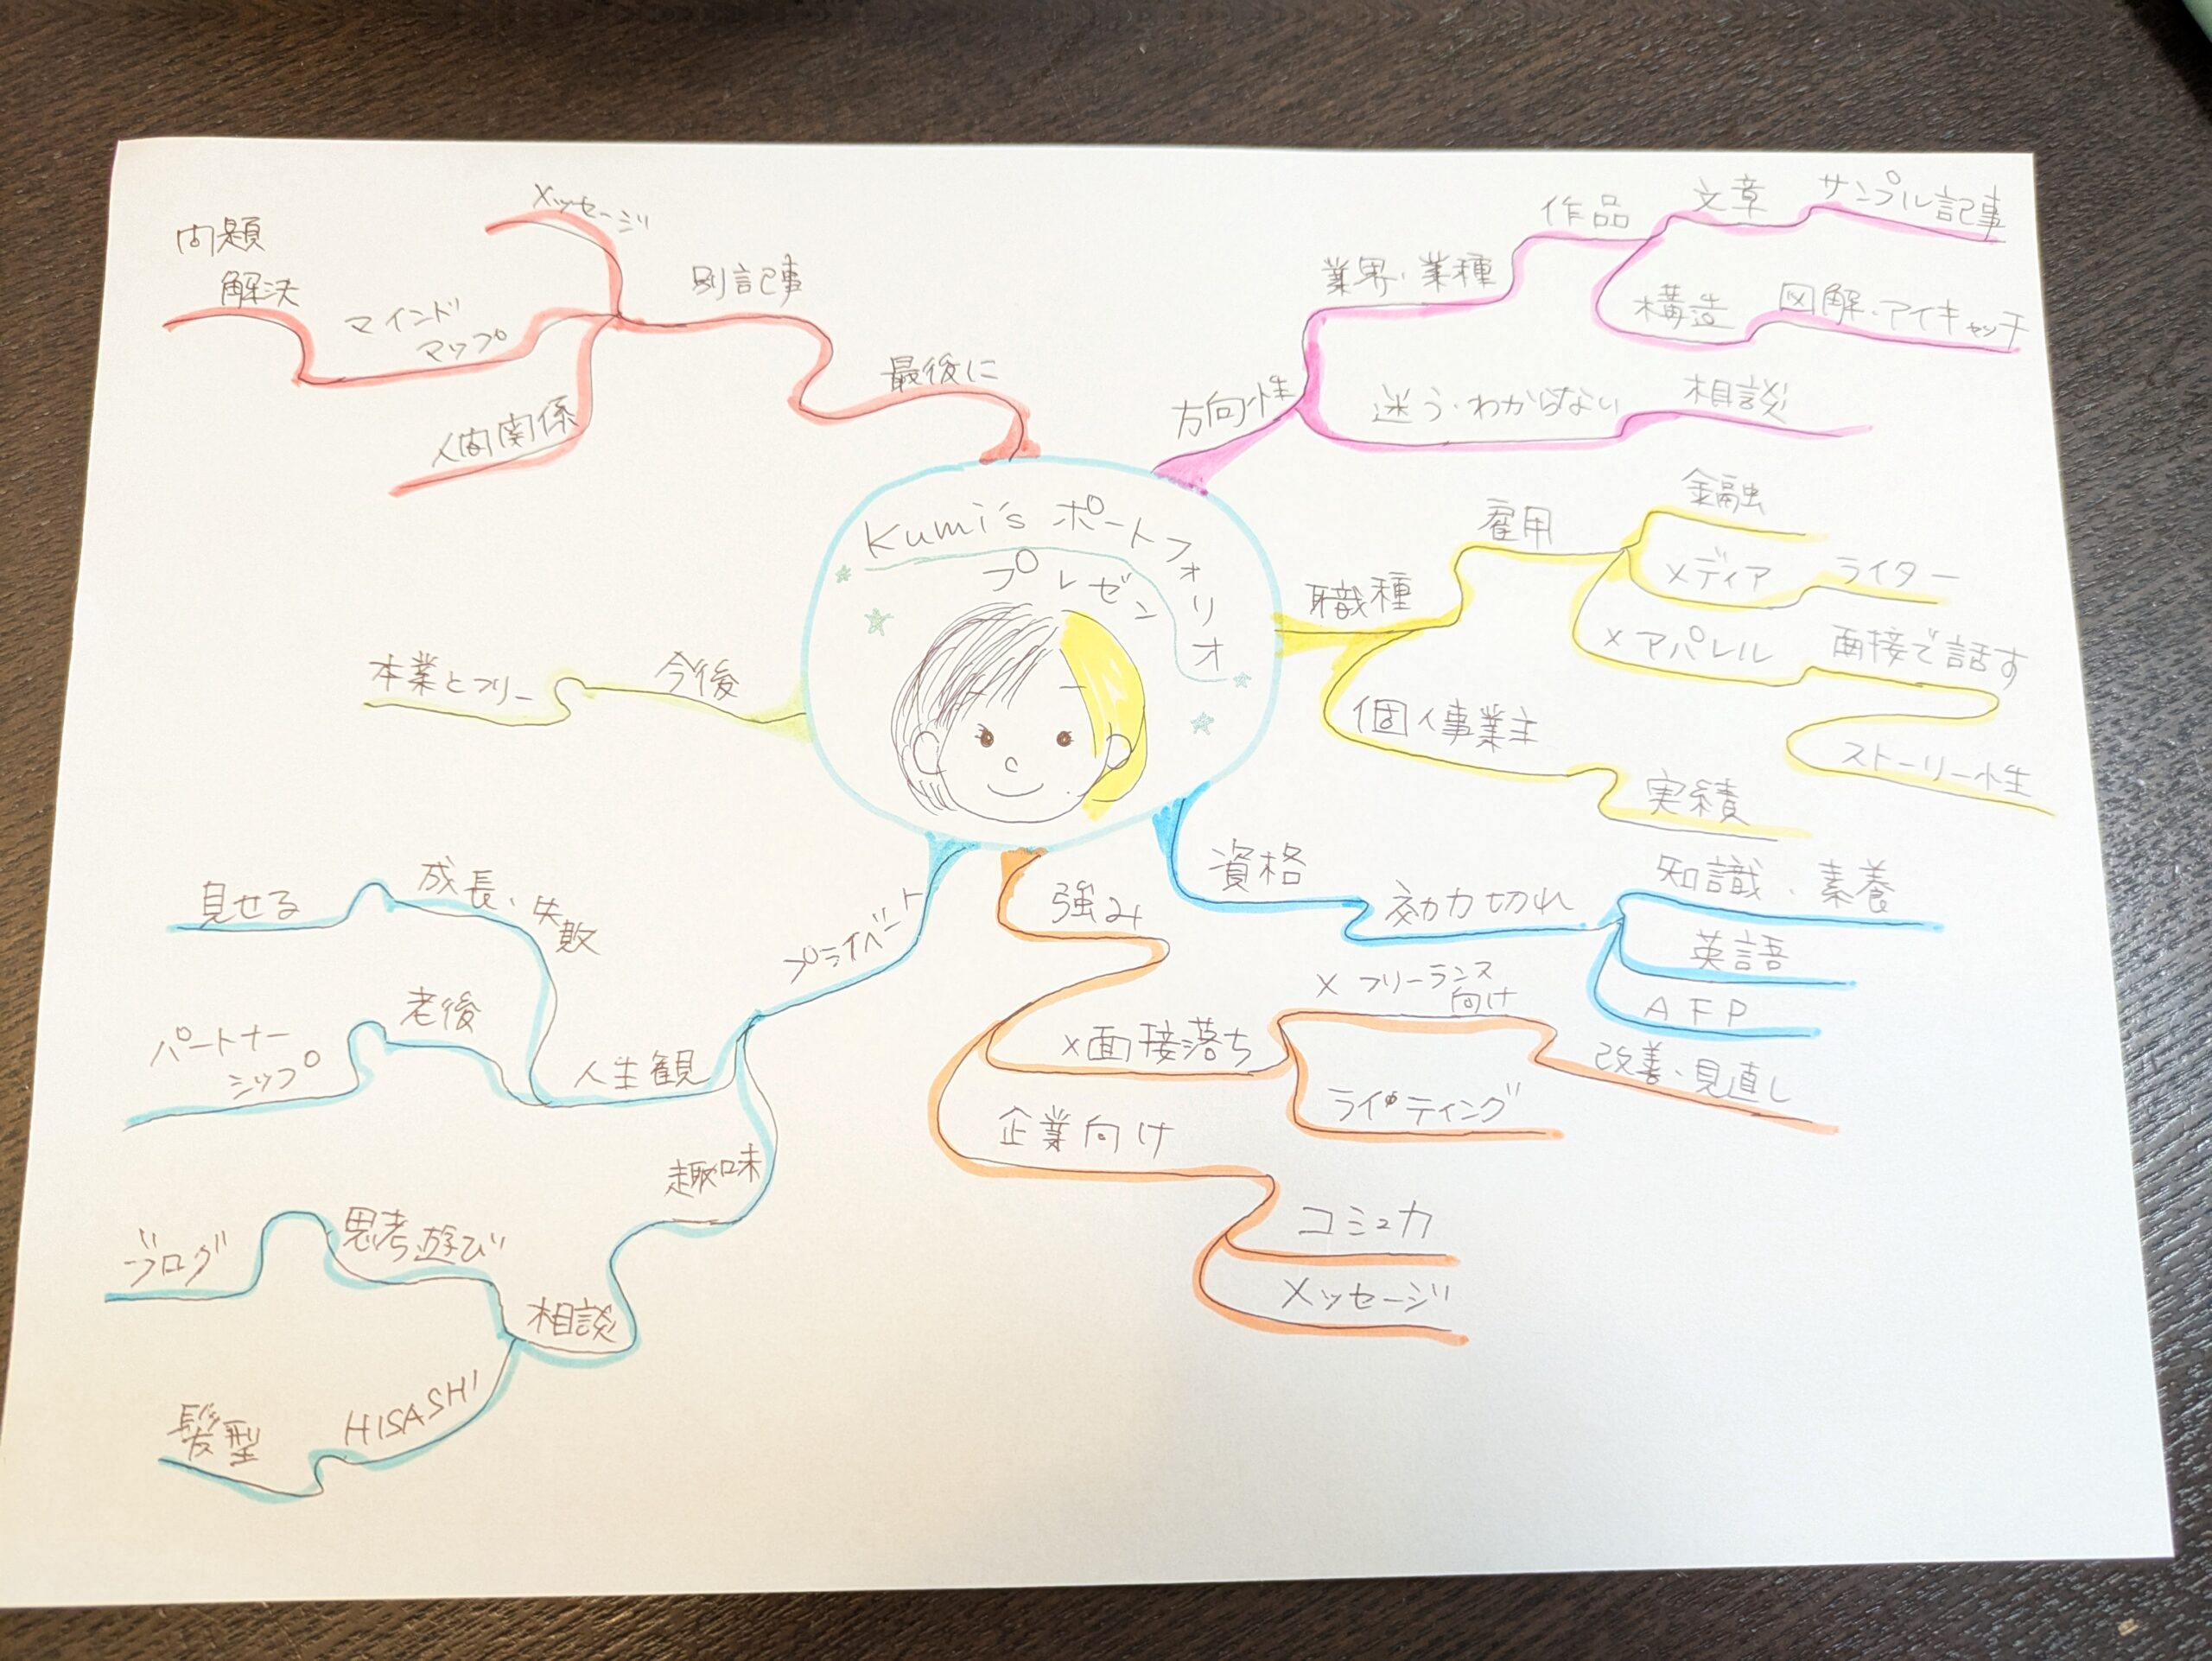 Kumi's ポートフォリオ
プレゼン
方向性
業界・業種
作品
文章
サンプル記事
構造
図解・アイキャッチ
迷う・わからない
相談
職種
雇用
金融
メディア
ライター
× アパレル
面接で話す
ストーリー性
個人事業主
実績
資格
効力切れ
知識・素養
英語
AFP
強み
×面接落ち
× フリーランス
向け
改善・見直し
ライティング
企業向け
コミュ力
メッセージ
プライベート
人生観
成長・失敗
見せる
老後
パートナー
シップ
趣味
相談
思考遊び
ブログ
HISASHI
髪型
今後
本業とフリー
最後に
別記事
メッセージ
マインド
マップ
問題
解決
人間関係